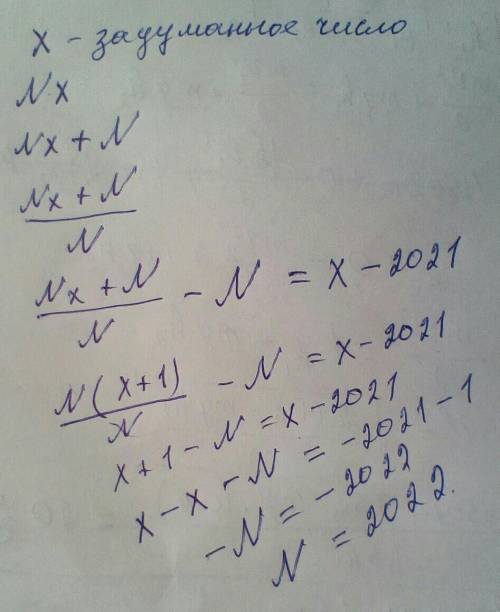 x - задуманное число
Nx
Nx + N
(Nx + N)/N
(Nx + N)/N - N = x - 2021
N(x+1)/N - N = x - 2021
x + 1 - N = x - 2021
x - x - N = -2021 - 1
-N = -2022
N = 2022.